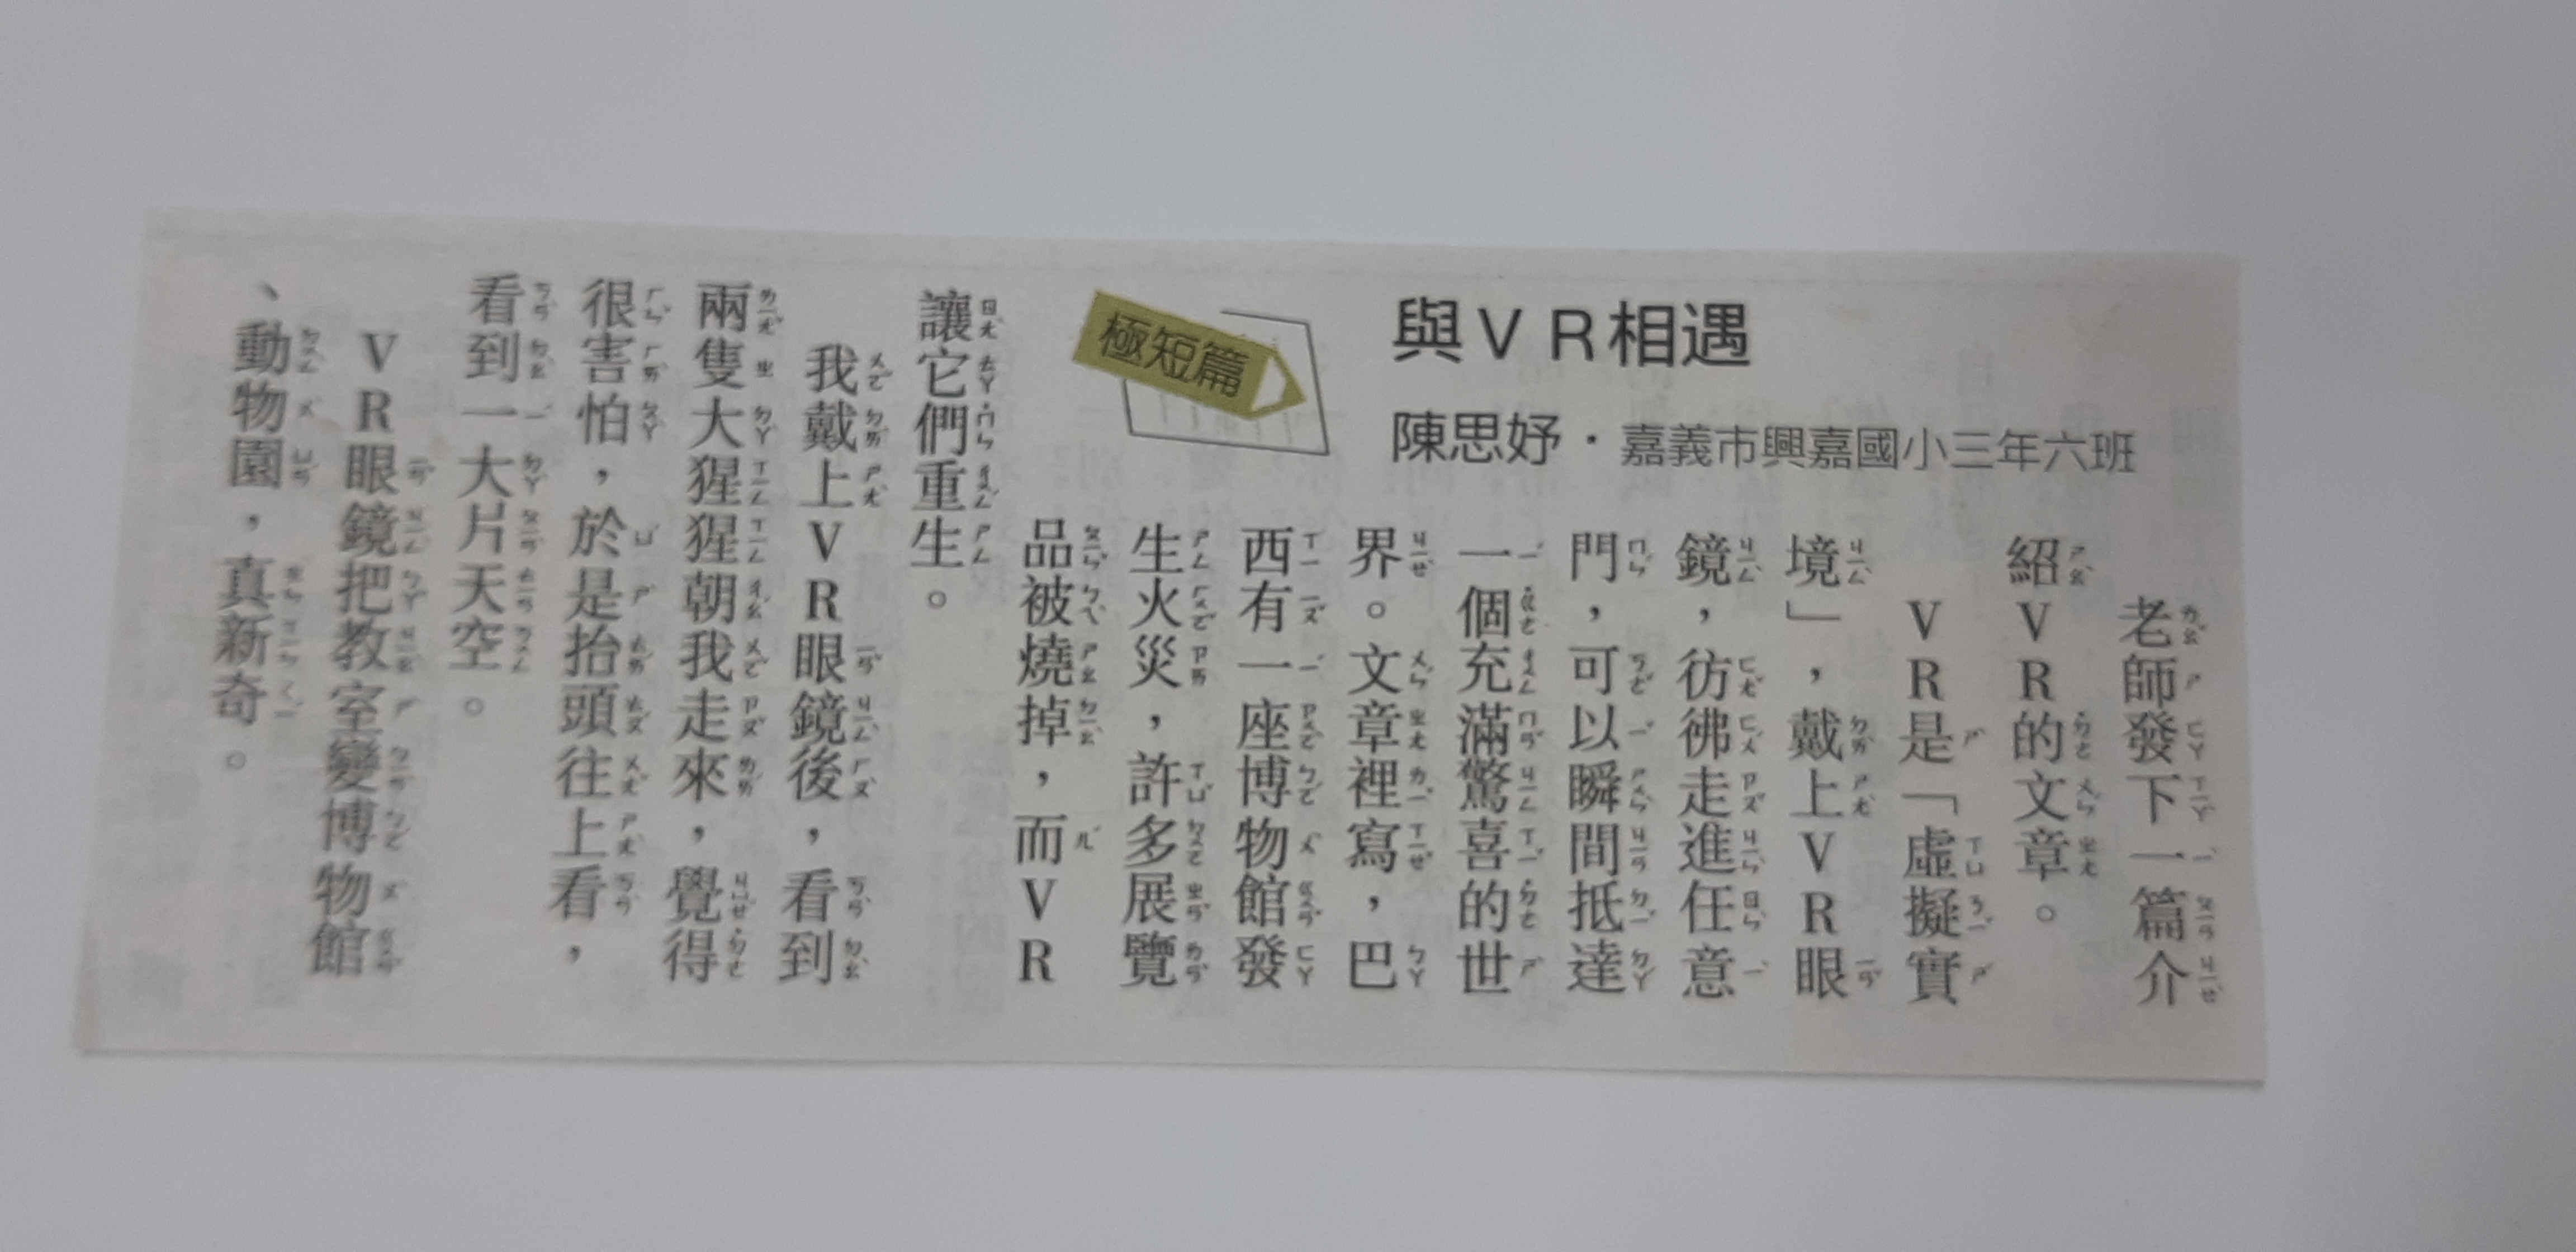 與VR相遇
極短篇
陳思妤・嘉義市興嘉國小三年六班
老師發下一篇介
紹VR的文章。
VR是「虛擬實
境」，戴上VR眼
鏡，彷彿走進任意
門，可以瞬間抵達
一個充滿驚喜的世
界。文章裡寫，巴
西有一座博物館發
生火災，許多展覽
品被燒掉，而VR
讓它們重生。
我戴上VR眼鏡後，看到
兩隻大猩猩朝我走來，覺得
很害怕，於是抬頭往上看，
看到一大片天空。
VR眼鏡把教室變博物館
、動物園，真新奇。